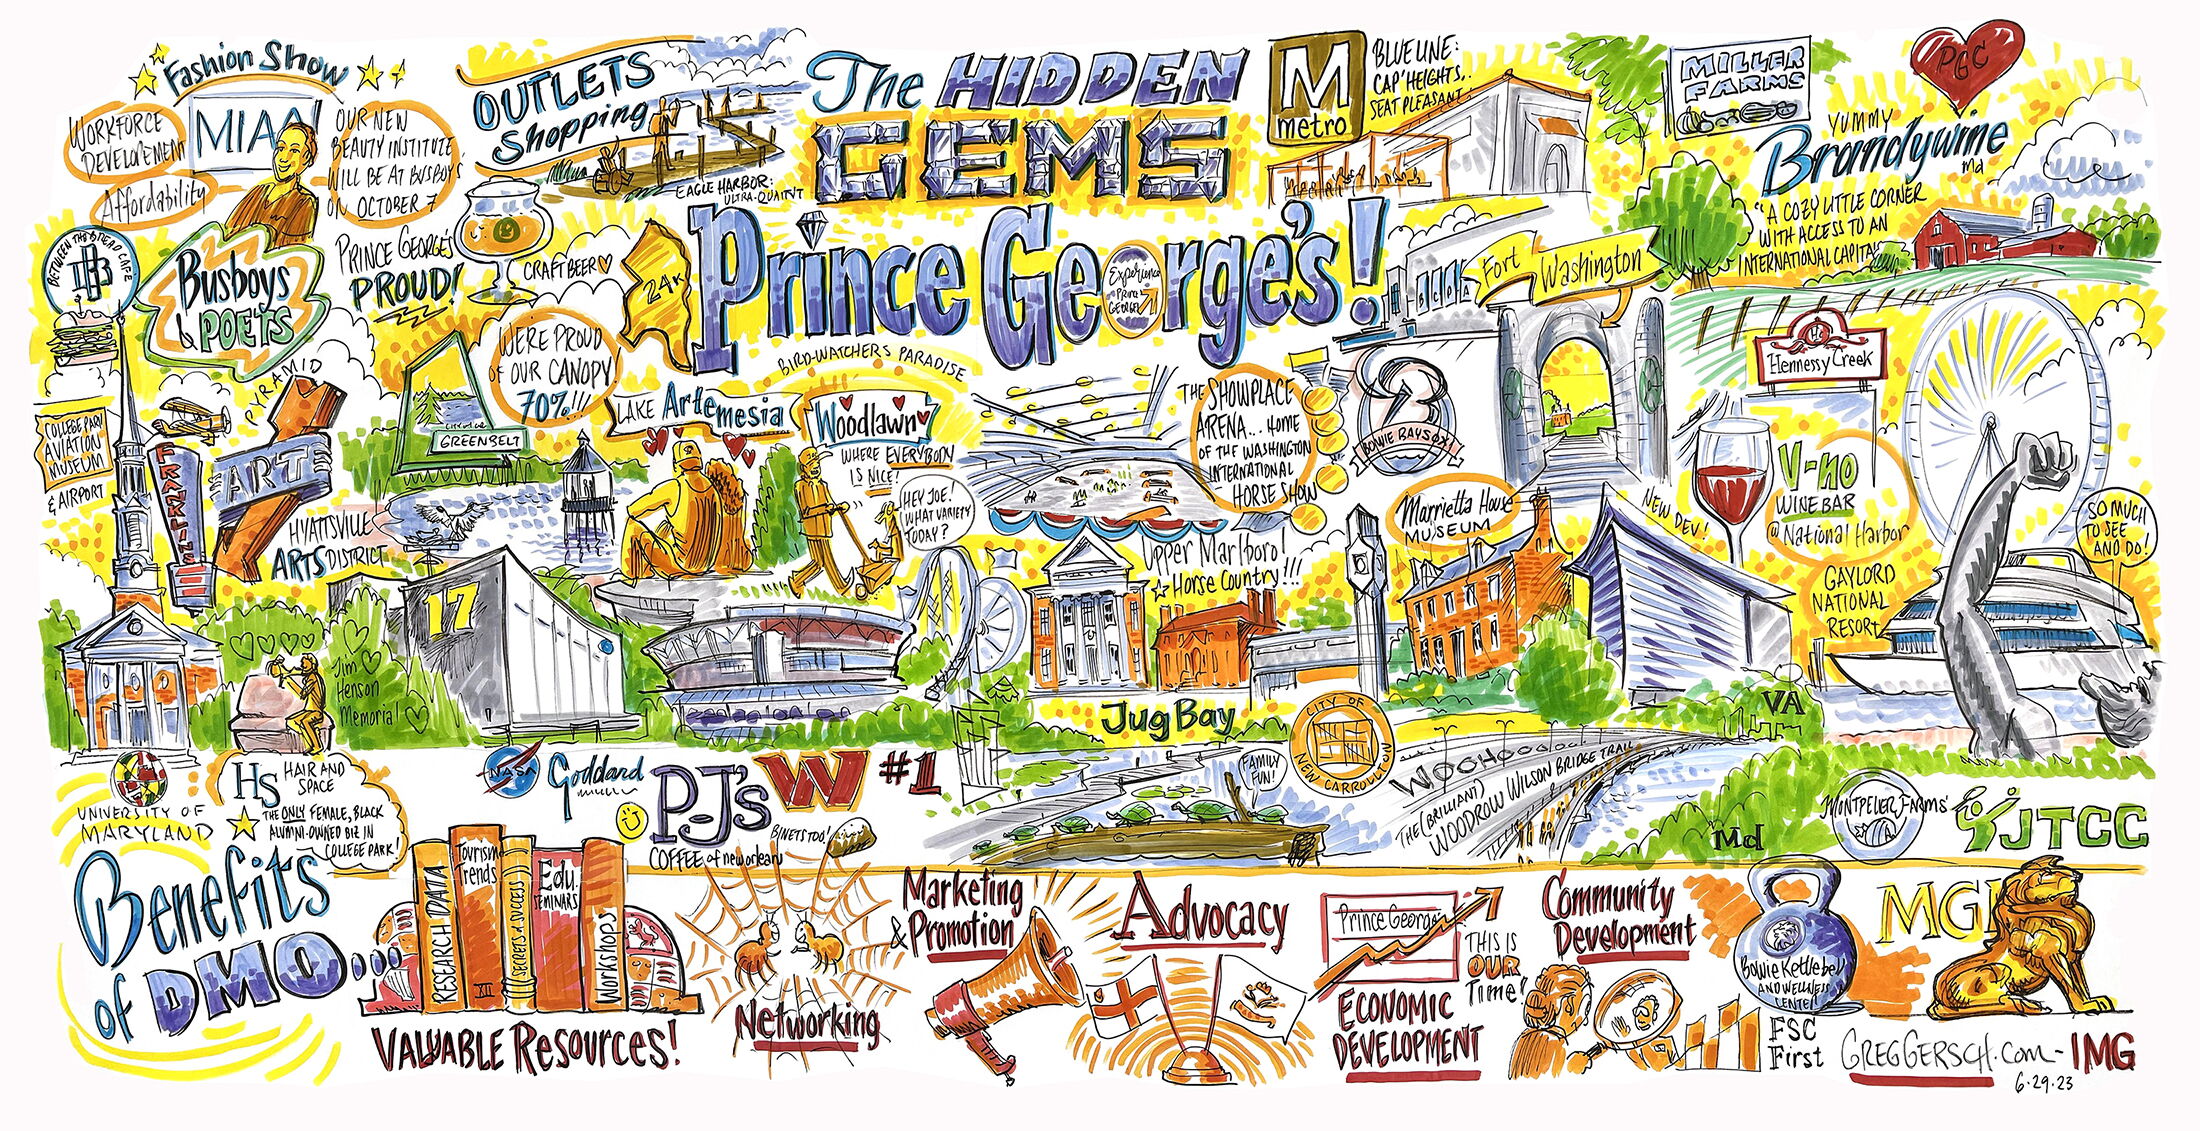 Fashion Show
WORKFORCE
DEVELOPEMENT
Affordability
MIA
OUR NEW
BEAUTY INSTITUTE
WILL BE AT BUSBOYS
ON OCTOBER 7
OUTLETS
Shopping
EAGLE HARBOR:
ULTRA-QUAINT
The HIDDEN
GEMS
Prince George's!
Experience
Prince
George's
M
metro
BLUE LINE:
CAP HEIGHTS,.
SEAT PLEASANT..
MILLER
FARMS
PGC
YUMMY
Brandywine
Md
"A COZY LITTLE CORNER
WITH ACCESS TO AN
INTERNATIONAL CAPITAL
BETWEEN THE BREAD CAFE
Busboys
& POETS
PRINCE GEORGE'S
PROUD!
CRAFT BEER
24K
WE'RE PROUD
OF OUR CANOPY!
70%!!!
BIRD-WATCHERS PARADISE
Fort Washington
Hennessy Creek
PYRAMID
COLLEGE PARK
AVIATION
MUSEUM
& AIRPORT
FRANKLINS
ARTS
HYATTSVILLE
ARTS DISTRICT
GREENBELT
LAKE Artemesia
Woodlawn
WHERE EVERYBODY
IS NICE!
HEY JOE!
WHAT VARIETY
TODAY?
THE SHOWPLACE
ARENA... HOME
OF THE WASHINGTON
INTERNATIONAL
HORSE SHOW
BOWIE BAYSOX
Upper Marlboro!
Horse Country!!!
Marrietta House
MUSEUM
NEW DEV!
V-no
WINE BAR
@ National Harbor
GAYLORD
NATIONAL
RESORT
SO MUCH
TO SEE
AND DO!
Jim
Henson
Memorial
17
Jug Bay
CITY OF
NEW CARROLLTON
VA
UNIVERSITY OF
MARYLAND
HS
HAIR AND
SPACE
THE ONLY FEMALE, BLACK
ALUMNI-OWNED BIZ IN
COLLEGE PARK!
NASA
Goddard
P-J'S
COFFEE of new orleans
W #1
BINETS TOO!
FAMILY
FUN!
WOOHOO
THE (BRILLIANT)
WOODROW WILSON BRIDGE TRAIL
Md
MONTPELIER FARMS
JTCC
Benefits
of DMO...
RESEARCH DATA
Tourism
Trends
XII
SECRETS of SUCCESS
Edu.
SEMINARS
Workshops
VALUABLE RESOURCES!
Networking
Marketing
& Promotion
Advocacy
Prince George's
THIS IS
OUR
Time!
ECONOMIC
DEVELOPMENT
Community
Development
Bowie Kettlebell
AND WELLNESS
CENTER
FSC
First
MGM
GREGGERSCH.com - IMG
6·29·23